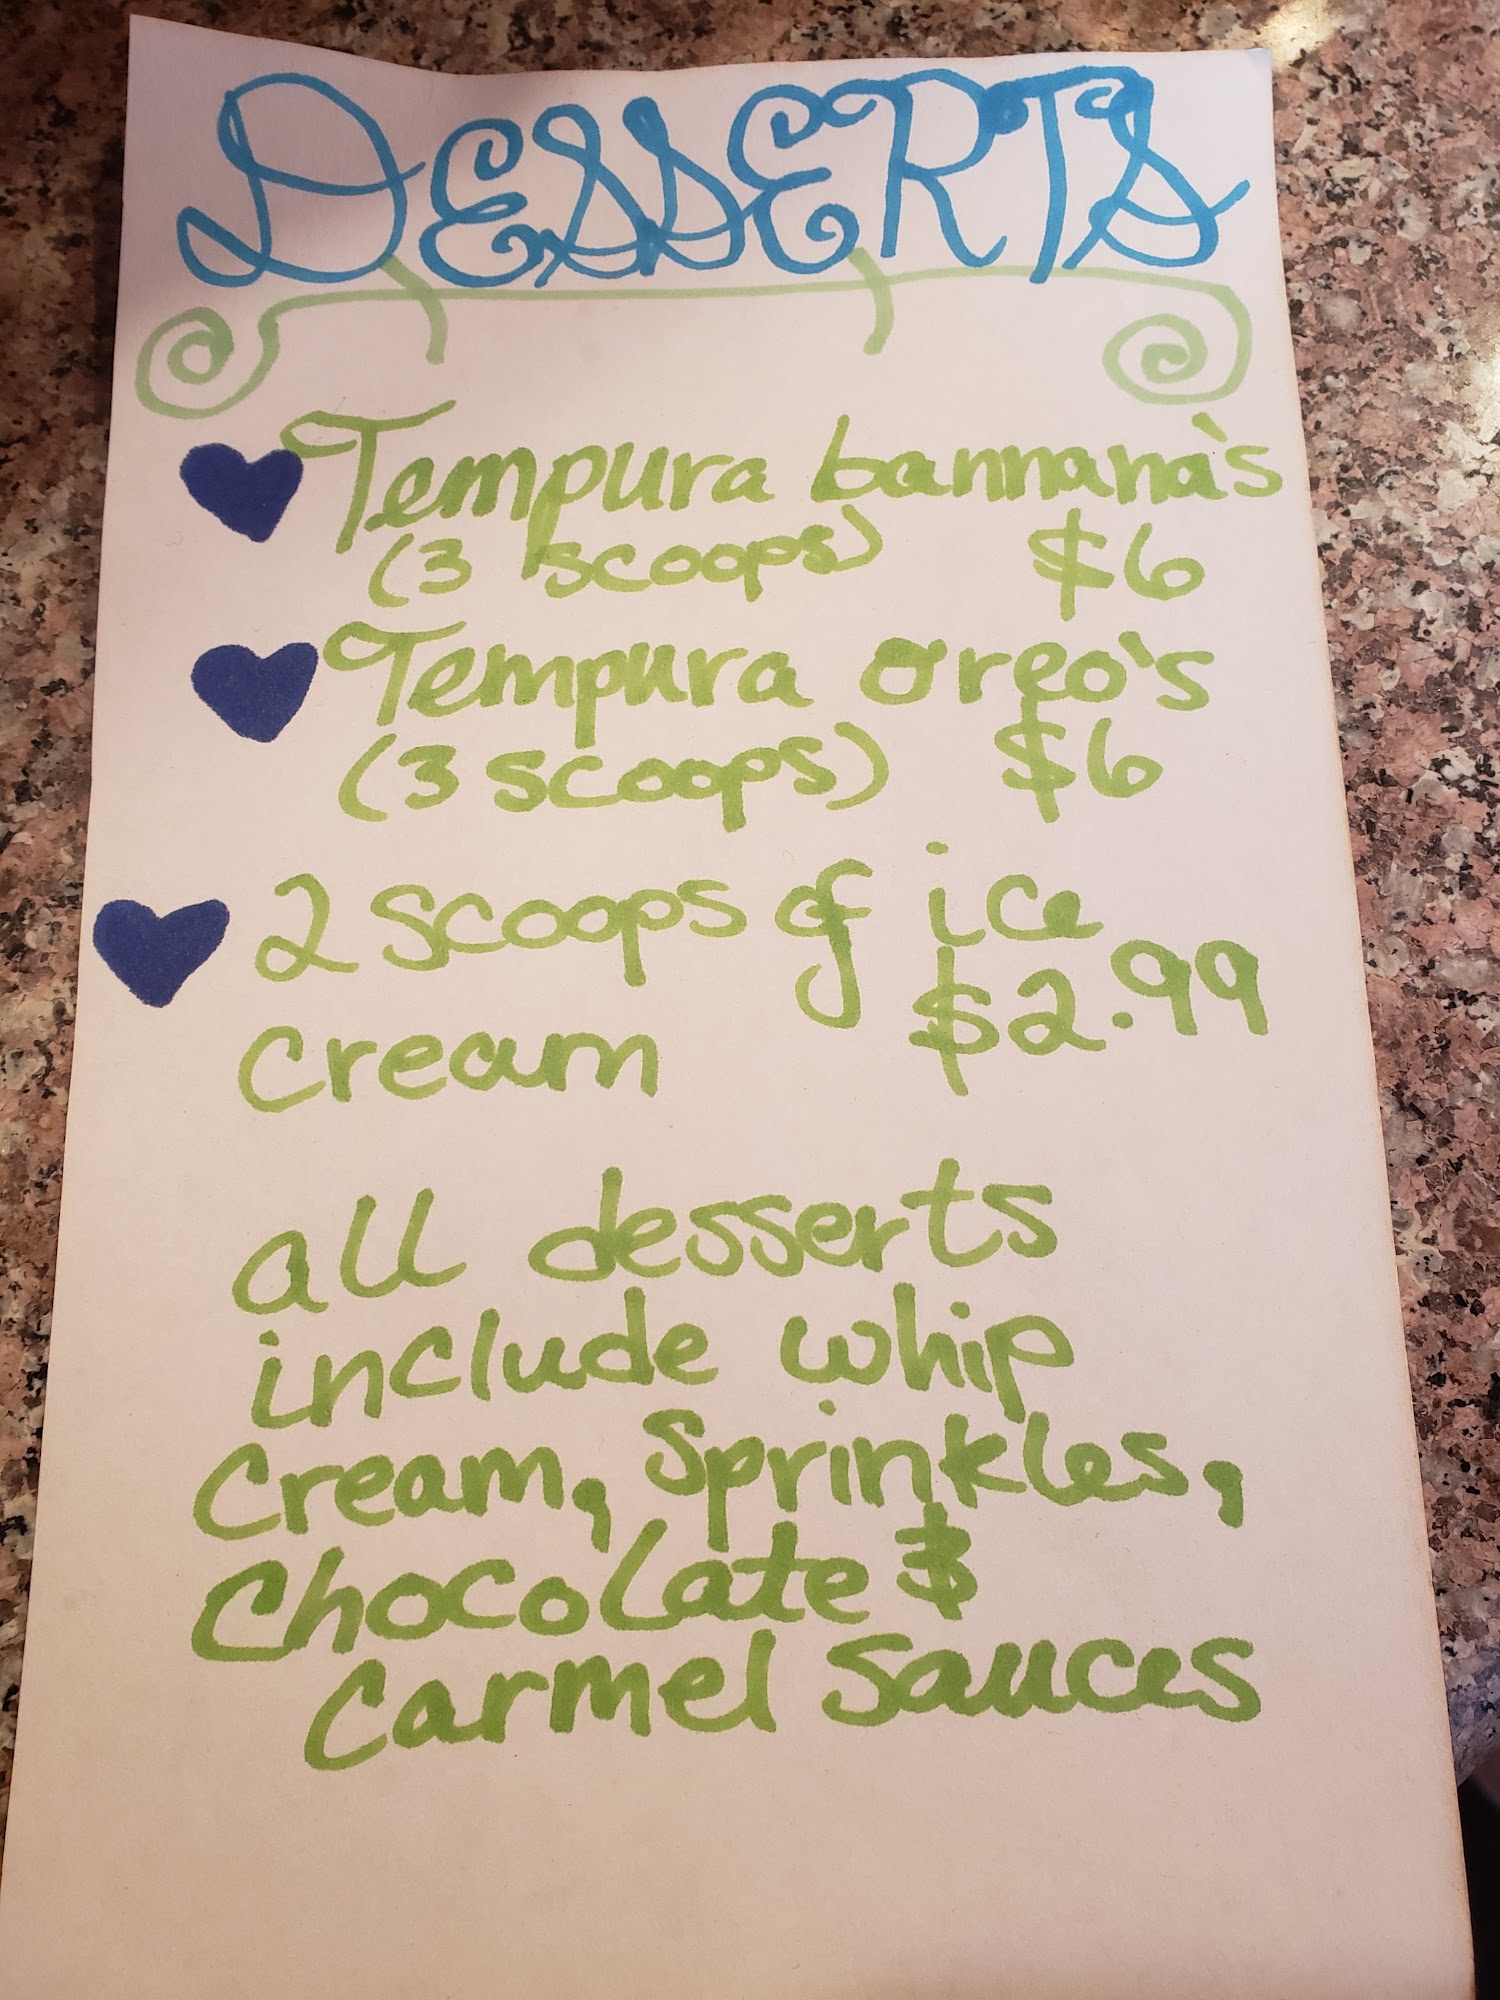 DESSERTS
Tempura bannana's
(3 scoops) $6
Tempura oreo's
(3 scoops) $6
2 scoops of ice
cream $2.99
all desserts
include whip
cream, sprinkles,
chocolate &
carmel sauces